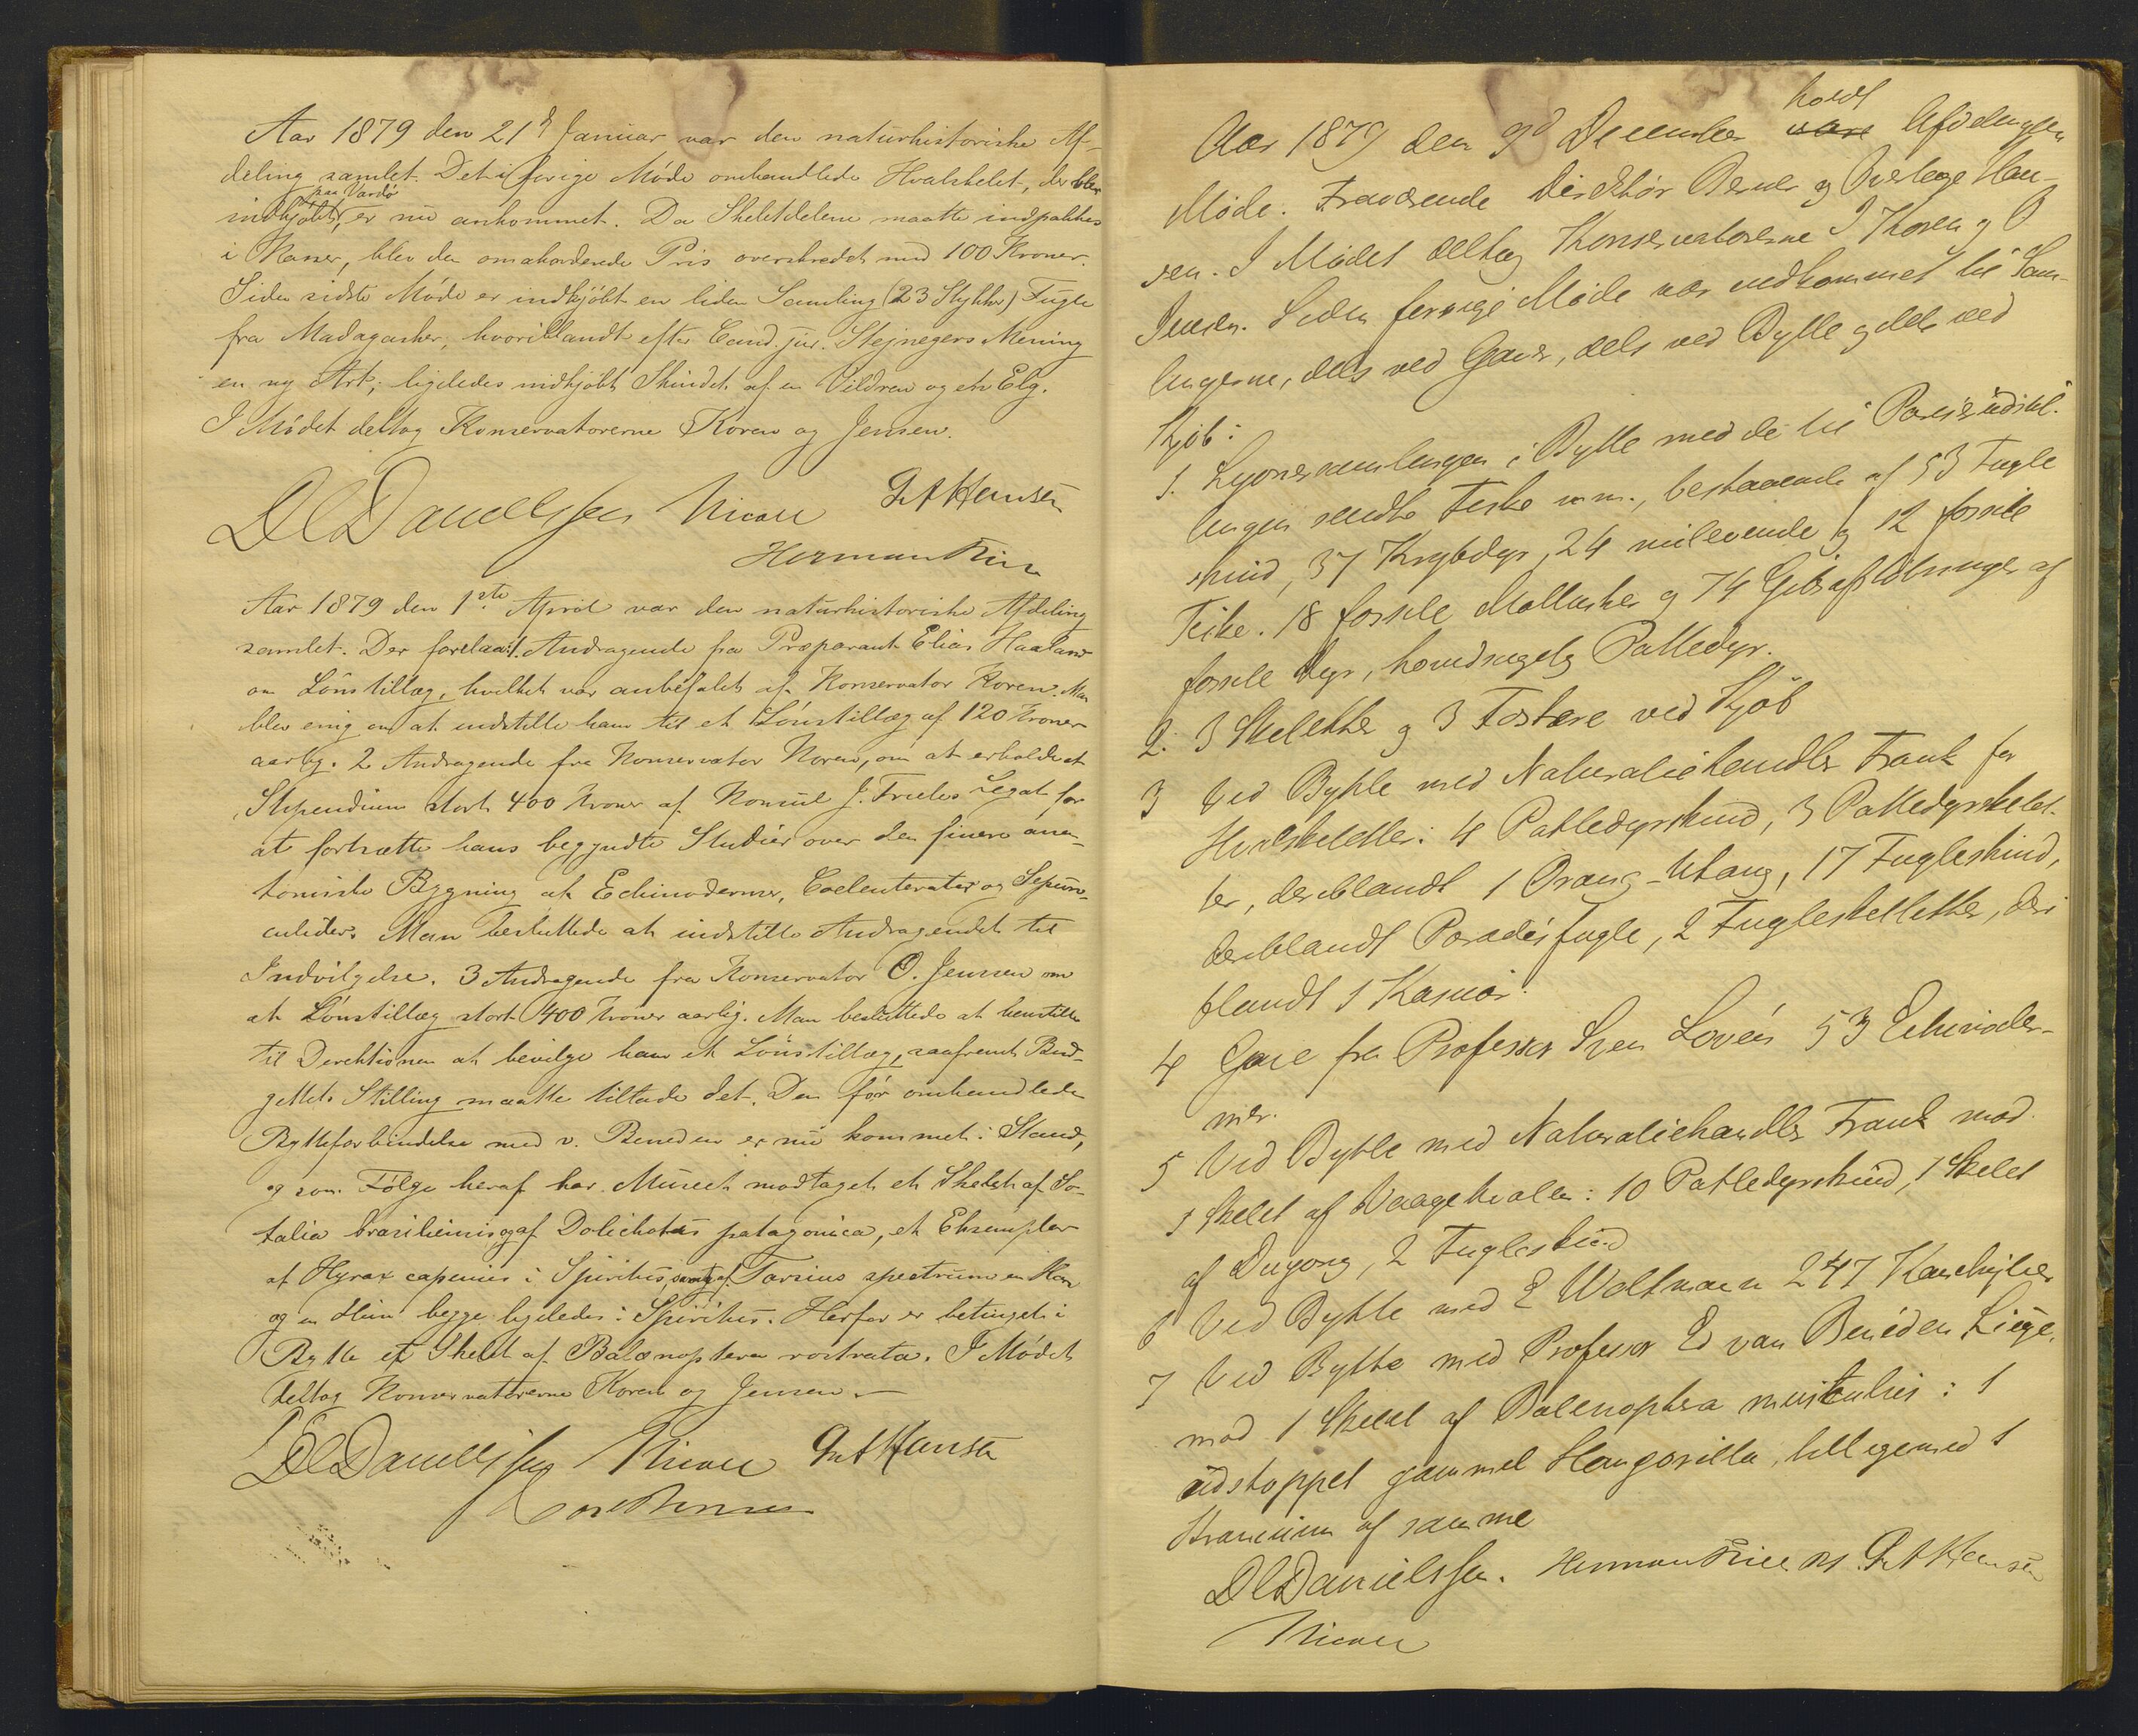 Aar 1879 den 21d Januar var den naturhistoriske Af-
deling samlet. Det i forige Møde omhandlede Hvalskelet, der blev
paa Vardö
indkjøbt, er nu ankommet. Da Skeletdelene maatte indpakkes
i Kasser, blev den omakorderede Pris overskredet med 100 Kroner.
Siden sidste Møde er indkjöbt en liden Samling (23 Stykker) Fugle
fra Madagaskar, hvoriblandt efter Cand. jur. Stejnegers Mening
en ny Art; ligeledes indkjöbt Skindet af en Vildren og en Elg.
I Mödet deltog Konservatorerne Koren og Jensen.
DCDanielssen Nicoll GAHansen
Herman Friele
Aar 1879 den 1ste April var den naturhistoriske Afdeling
samlet. Der forelaa: 1. Andragende fra Præparant Elias Haaland
om Lönstillæg, hvilket var anbefalet af Konservator Koren. Man
blev enig om at indstille ham til et Lönstillæg af 120 Kroner
aarlig. 2 Andragende fra Konservator Koren, om at erholde et
Stipendium stort 400 Kroner af Konsul J. Frieles Legat for
at fortsætte hans begyndte Studier over den finere ana-
tomiske Bygning af Echinodermer, Coelenterater og Sipun-
culider. Man besluttede at indstille Andragendet til
Indvilgelse. 3 Andragende fra Konservator O. Jensen om
et Lönstillæg stort 400 Kroner aarlig. Man besluttede at henstille
til Direktionen at bevilge ham et Lönstillæg, saafremt Bud-
gettets Stilling maatte tillade det. Den för omhandlede
Bytteforbindelse med v. Beneden er nu kommet i Stand,
og som Fölge heraf har Museet modtaget et Skelet af So-
talia brasiliensis og af Dolichotis patagonica, et Exemplar
af Hyrax capensis i Spiritus, samt af Tarsius spectrum en Han
og en Hun begge ligeledes i Spiritus. Herfor er betinget i
Bytte et Skelet af Balænoptera rostrata. I Mödet
deltog Konservatorerne Koren og Jensen.
DCDanielssen Nicoll GAHansen
Aar 1879 den 9d December holdt
vare Afdelingen
Møde. Fraværende Direktør Berner og Overlæge Han-
sen. I Mødet deltog Konservatorerne J Koren og O
Jensen. Siden forrige Møde var vedkommet til Sam-
lingerne, dels ved Gaver, dels ved Bytte og dels ved
Kjøb:
1. Lyonersamlingen i Bytte med de til Pariserudstil-
lingen sendte Fiske m.m., bestaaende af 53 Fugle
skind, 37 Krybdyr, 24 nulevende og 12 fossile
Fiske. 18 fossile Mollusker og 74 Gibsafstøbninger af
fossile Dyr, hovedsagelig Pattedyr.
2. 3 Skeletter og 3 Fostere ved Kjöb
3 Ved Bytte med Naturaliehandler Frank for
Hvalskeletter: 4 Pattedyrskind, 3 Pattedyrskelet-
ter, deriblandt 1 Orang-Utang, 17 Fugleskind,
deriblandt Paradisfugle, 2 Fugleskeletter, deri
blandt 1 Kasuar.
4 Gave fra Professor Sven Lovén 53 Echinoder-
mer.
5 Ved Bytte med Naturaliehandler Frank mod
1 Skelet af Vaagehvalen: 10 Pattedyrskind, 1 Skelet
af Dugong, 2 Fugleskind
6 Ved Bytte med E Woltmann 247 Konchylier
7 Ved Bytte med Professor Ed van Beneden Liège,
mod 1 Skelet af Balenoptera musculus: 1
udstoppet gammel Hangorilla, tilligemed 1
Kranium af samme
DCDanielssen. Herman Friele GAHansen
Nicoll